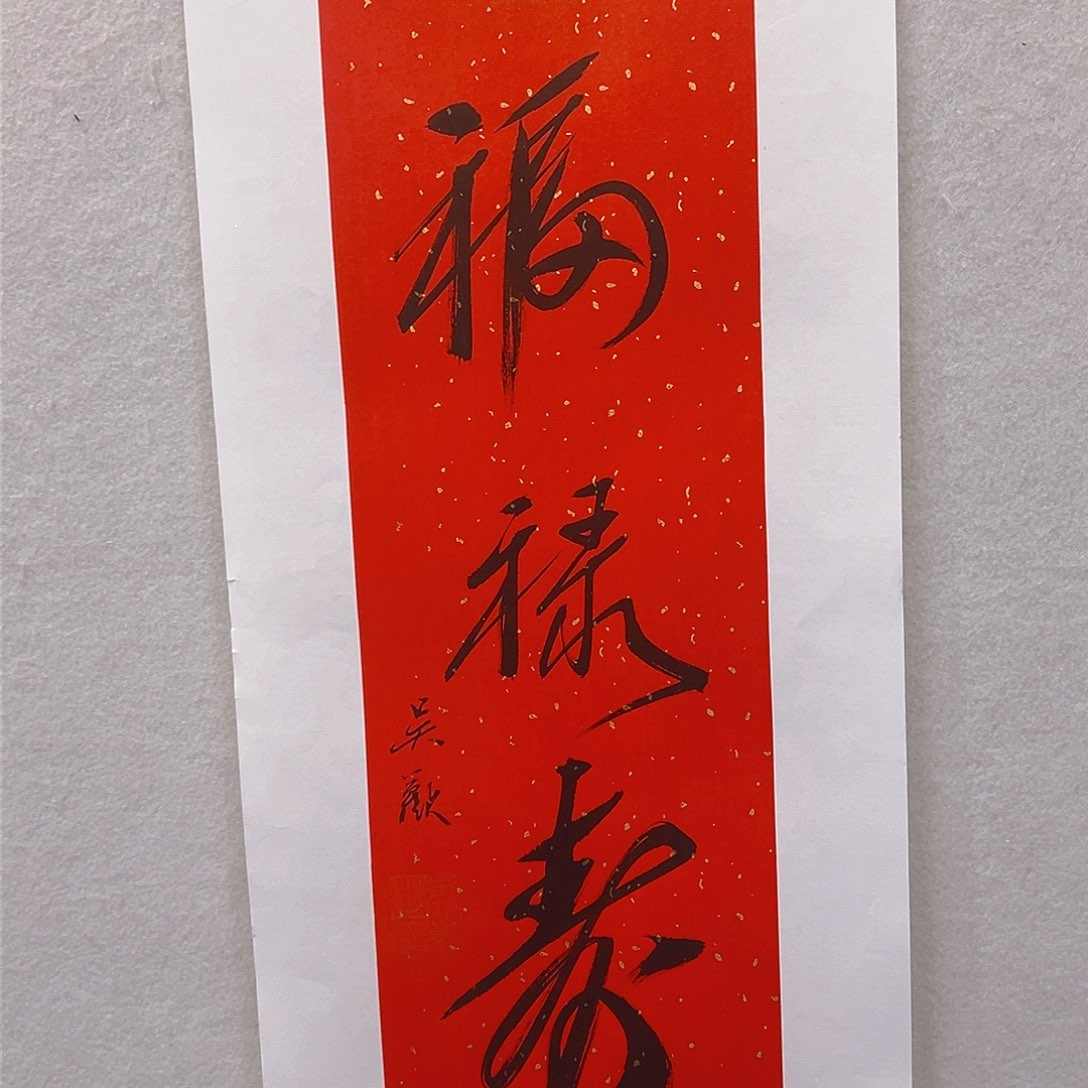 福禄寿
吴歡